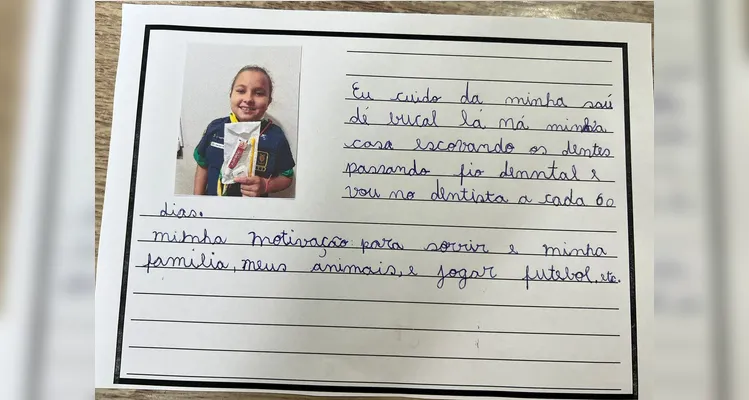 Eu cuido da minha saú
dé bucal lá ná minha
casa escovando os dentes
passando fio denntal e
vou no dentista a cada 60
dias.
minha motivação para sorrir e minha
família, meus ánimais, e jogar futebol, etc.